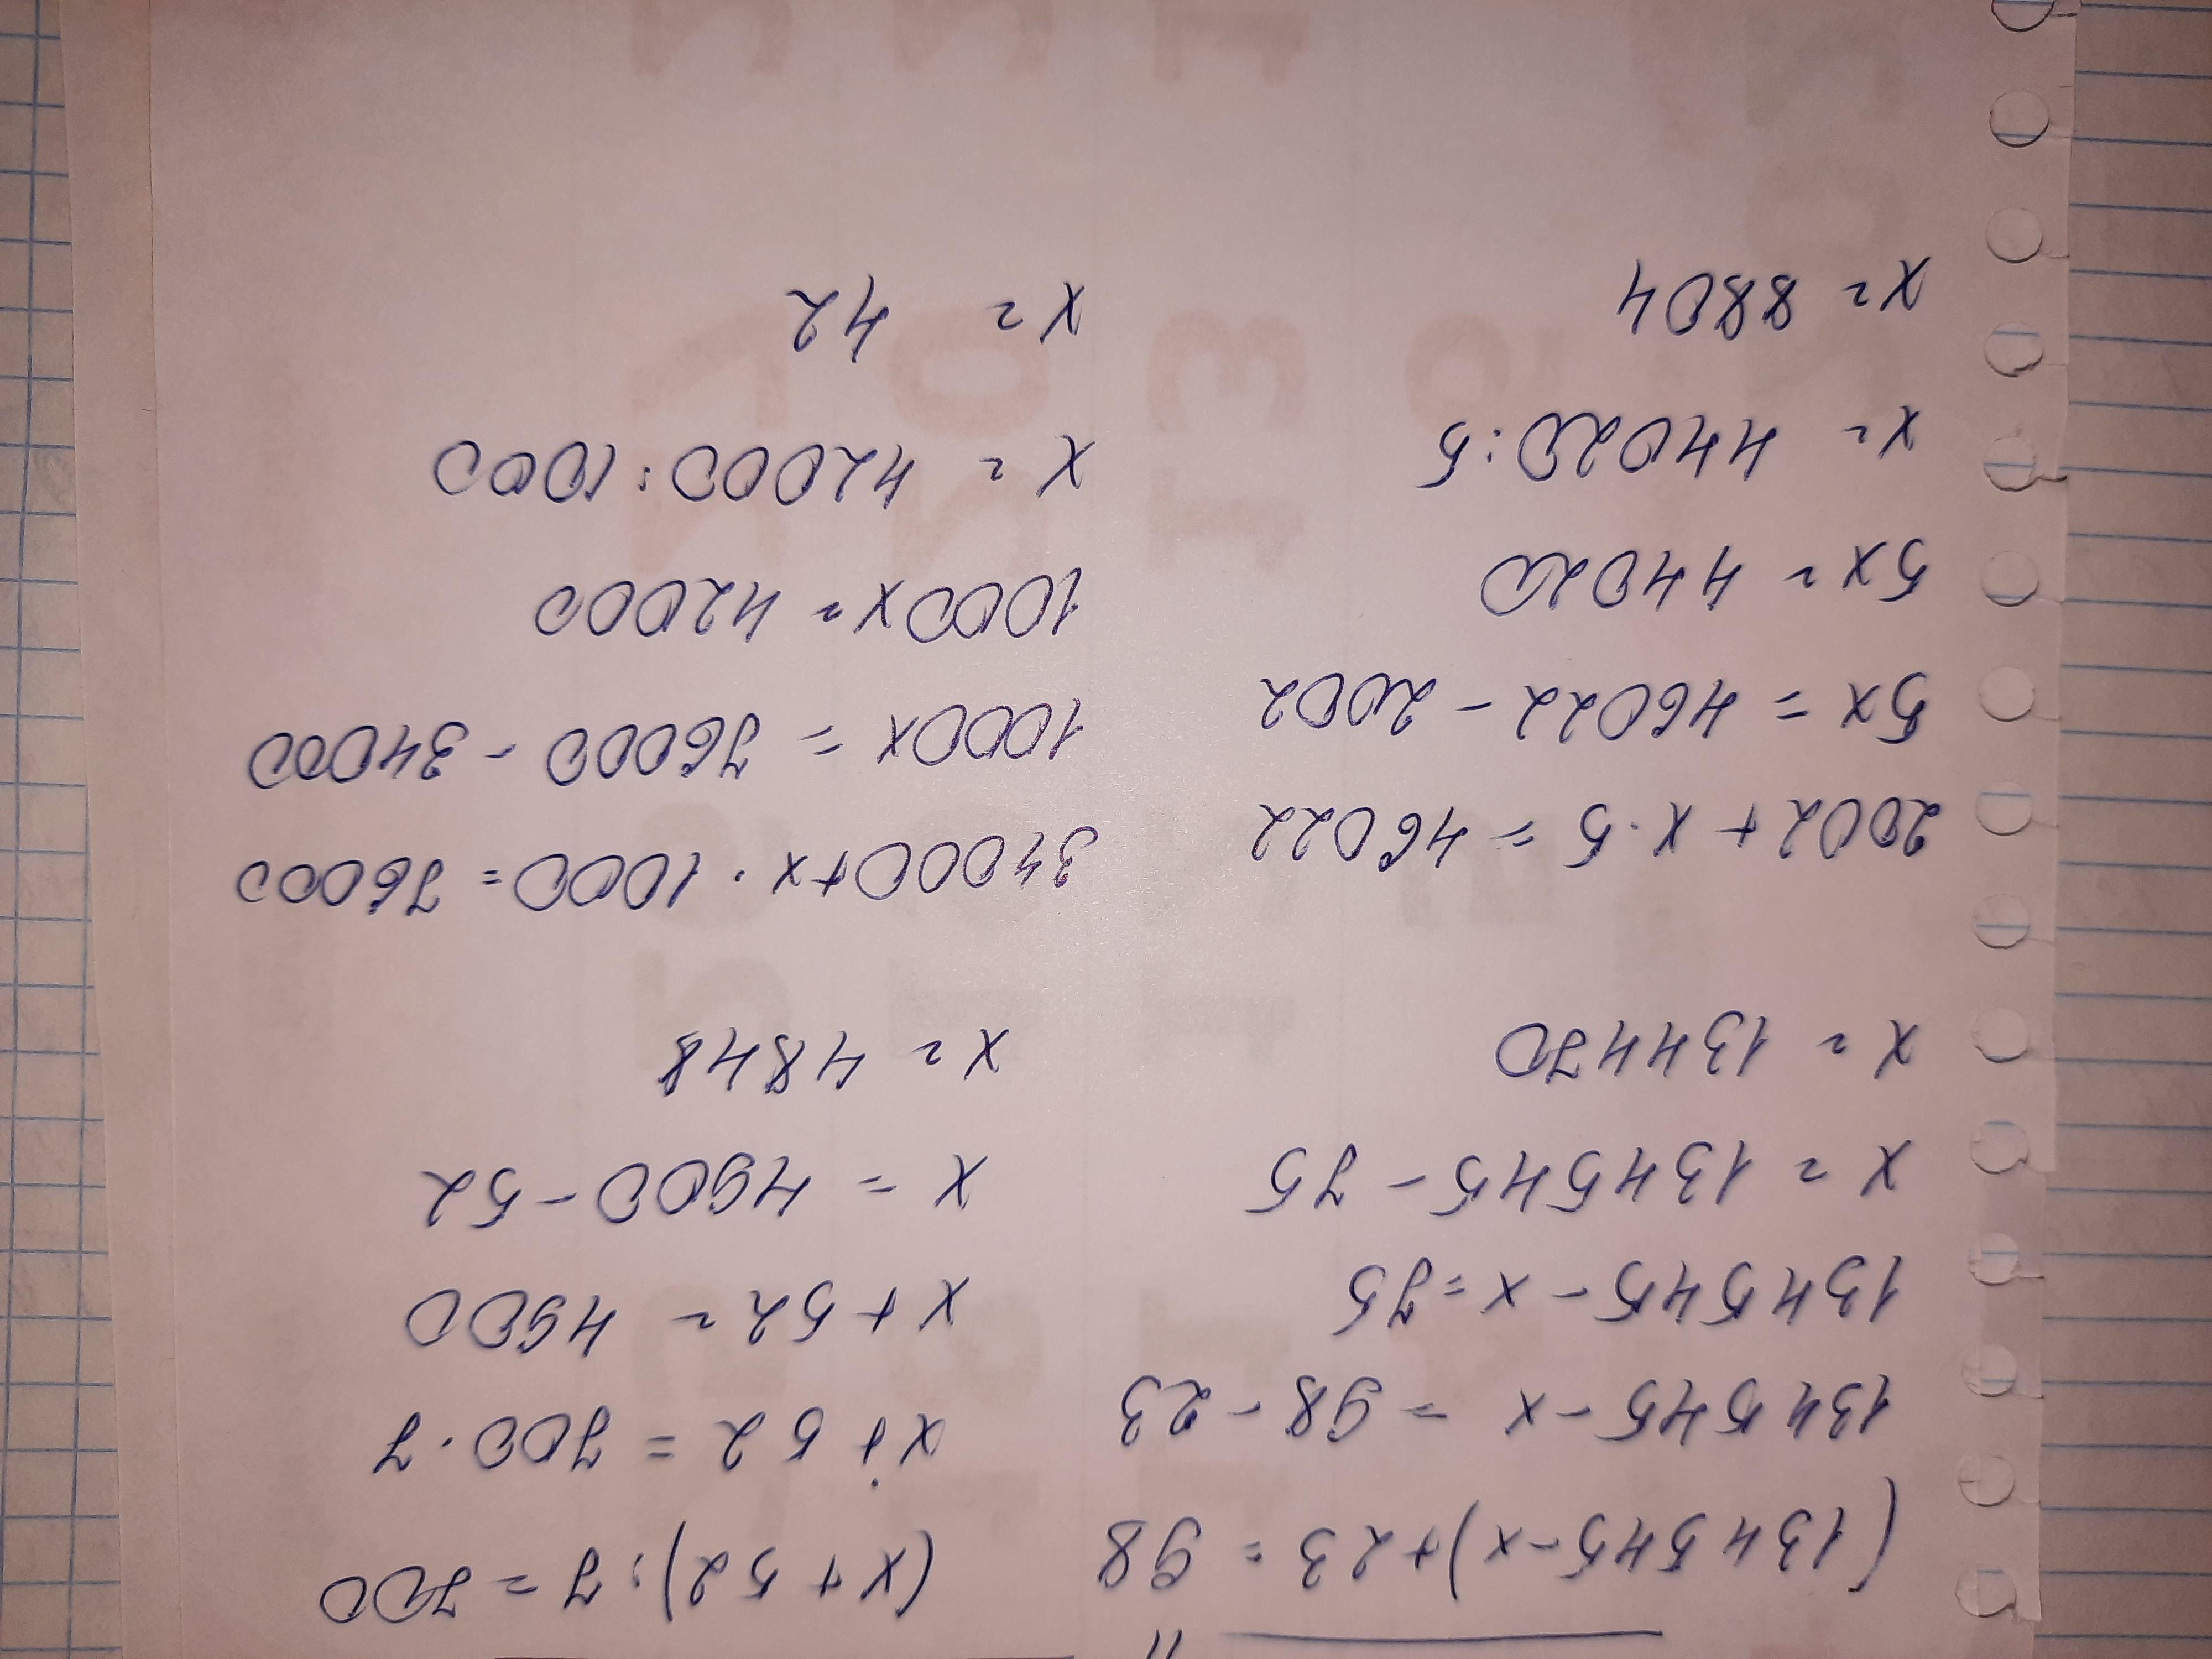 (134545-x)+23=98
134545-x=98-23
134545-x=75
x=134545-75
x=134470
(x+52):7=700
x+52=700·7
x+52=4900
x=4900-52
x=4848
2002+x·5=46022
5x=46022-2002
5x=44020
x=44020:5
x=8804
34000+x·1000=76000
1000x=76000-34000
1000x=42000
x=42000:1000
x=42